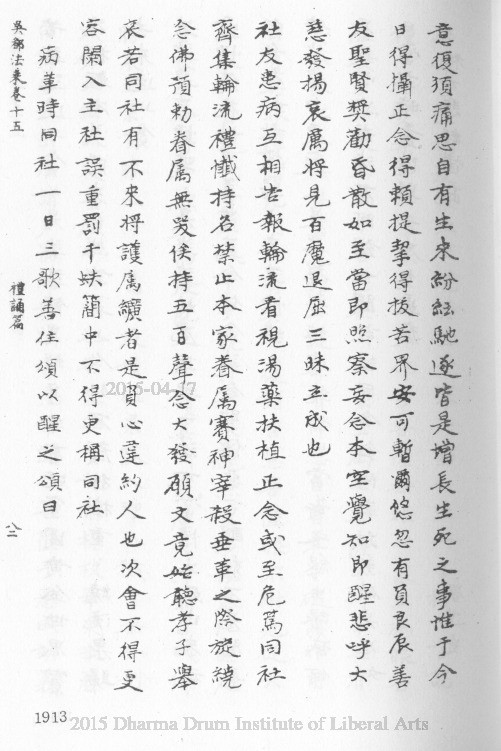 意復須痛思自有生來紛紜馳逐皆是增長生死之事惟于今
日得攝正念得賴提挈得拔苦界安可暫爾悠忽有負良辰善
友聖賢獎勸昏散如至當即照察妄念本空覺知即醒悲呼大
慈發揚哀厲將見百魔退屈三昧立成也
社友患病互相告報輪流看視湯藥扶植正念或至危篤同社
齊集輪流禮懺持名禁止本家眷属賽神宰殺垂革之際旋繞
念佛預勅眷属無哭俟持五百聲念大發願文竟始聽孝子舉
哀若同社有不來將護属纊者是負心違約人也次會不得更
容闌入主社誤重罰千
簡中不得更稱同社
病革時同社一日三歌善住頌以醒之頌曰
吳都法乘卷十五
禮誦篇
八二
1913
2015-04-17
2015 Dharma Drum Institute of Liberal Arts